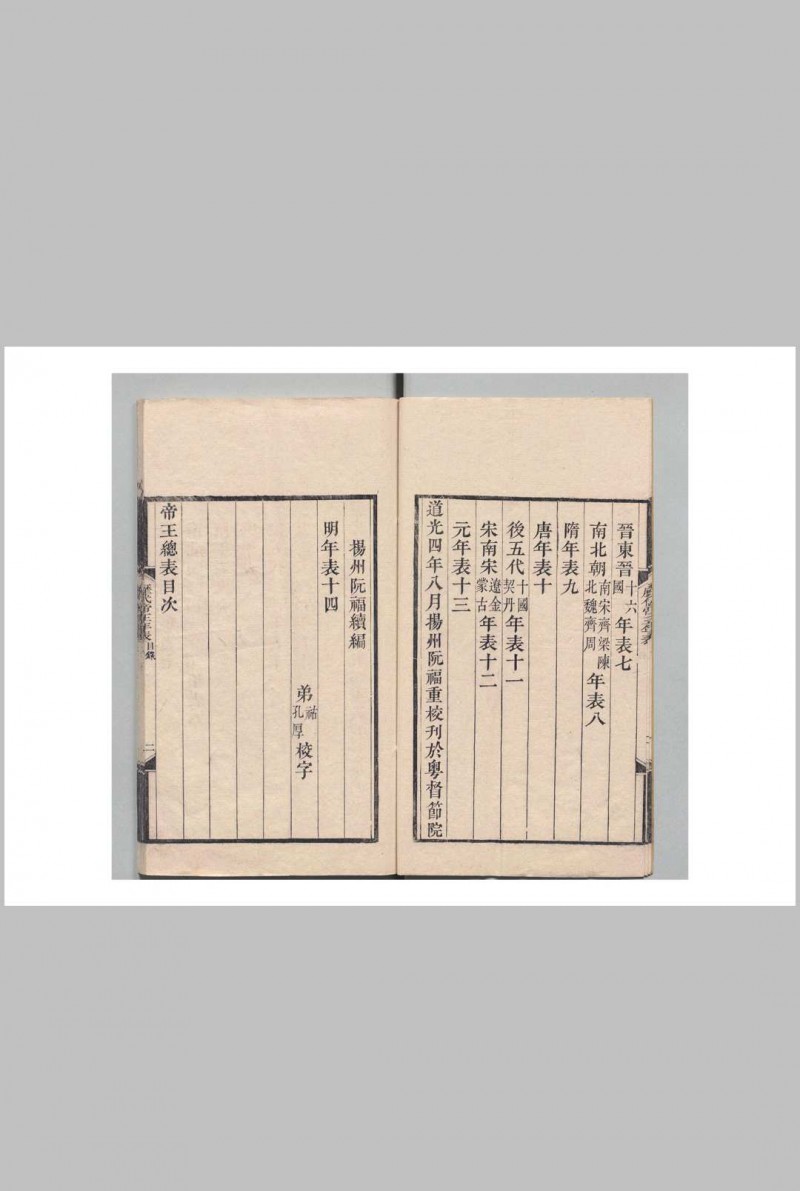 晉東晉十六國年表七
南北朝南宋齊梁陳北魏齊周年表八
隋年表九
唐年表十
後五代十國契丹年表十一
宋南宋遼金蒙古年表十二
元年表十三
道光四年八月揚州阮福重校刊於粵督節院
揚州阮福續編
明年表十四
弟祜孔厚校字
帝王總表目次
歷代帝王年表目錄
二